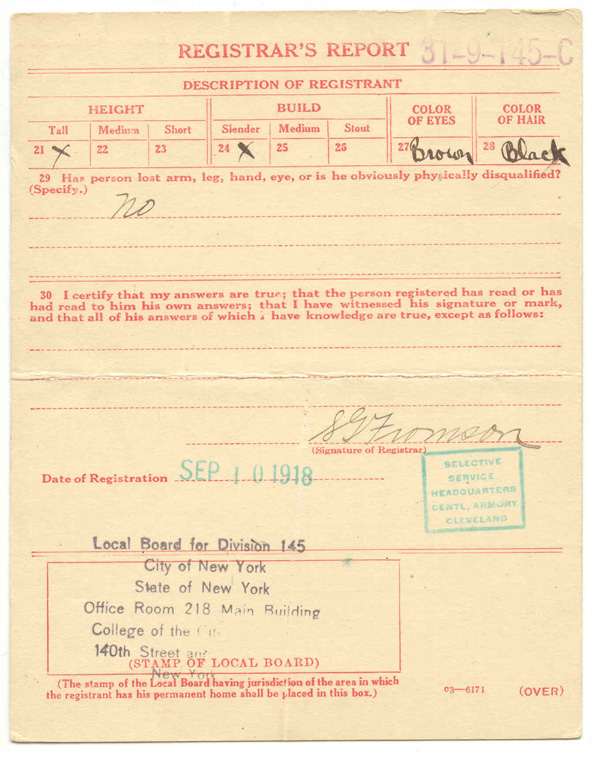 REGISTRAR'S REPORT 31-9-145-C
DESCRIPTION OF REGISTRANT
HEIGHT BUILD COLOR OF EYES COLOR OF HAIR
Tall Medium Short Slender Medium Stout
21 X 22 23 24 X 25 26 27 Brown 28 Black
29 Has person lost arm, leg, hand, eye, or is he obviously physically disqualified?
(Specify.)
No
30 I certify that my answers are true; that the person registered has read or has
had read to him his own answers; that I have witnessed his signature or mark,
and that all of his answers of which I have knowledge are true, except as follows:
(Signature of Registrar)
Date of Registration SEP 10 1918
SELECTIVE
SERVICE
HEADQUARTERS
CENTL. ARMORY
CLEVELAND
Local Board for Division 145
City of New York
State of New York
Office Room 218 Main Building
College of the
140th Street and
(STAMP OF LOCAL BOARD)
New York
(The stamp of the Local Board having jurisdiction of the area in which
the registrant has his permanent home shall be placed in this box.)
c3—6171 (OVER)